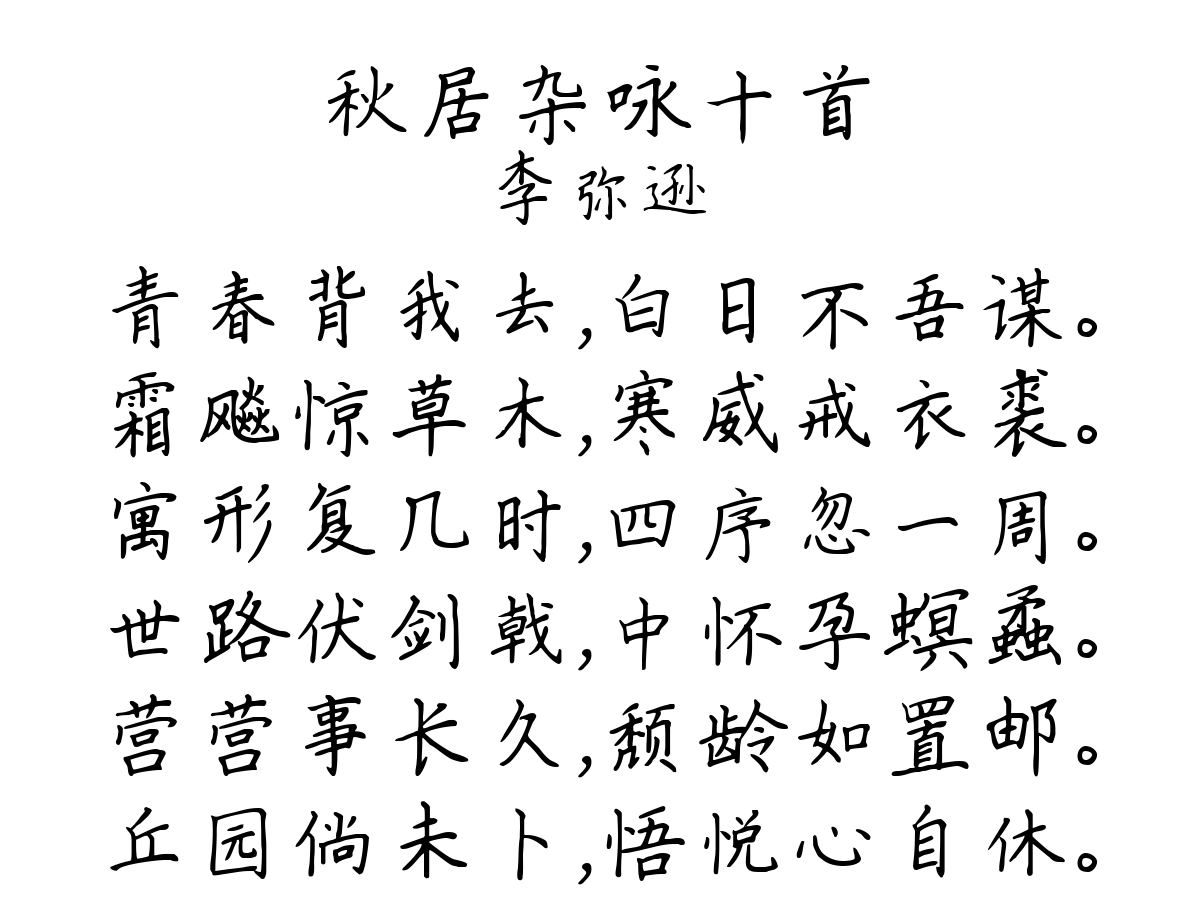 秋居杂咏十首
李弥逊
青春背我去,白日不吾谋。
霜飚惊草木,寒威戒衣裘。
寓形复几时,四序忽一周。
世路伏剑戟,中怀孕螟蟊。
营营事长久,颓龄如置邮。
丘园倘未卜,悟悦心自休。